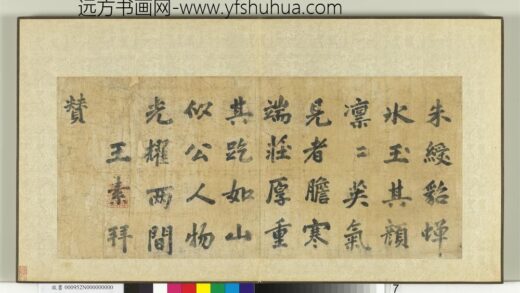 远方书画网-www.yfshuhua.com
朱綬貂蟬
氷玉其顏
凜〻英氣
見者膽寒
端莊厚重
其跂如山
似公人物
光耀兩間
王素拜
贊
故書 000952N000000000
7